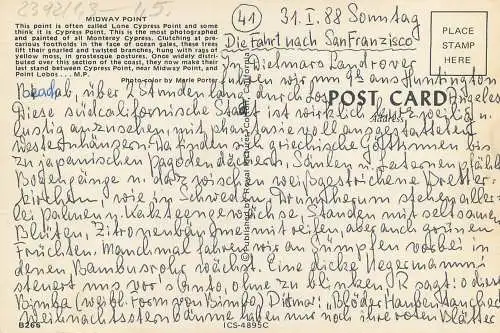 MIDWAY POINT
This point is often called Lone Cypress Point and some
think it is Cypress Point. This is the most photographed
and painted of all Monterey Cypress. Clutching at pre-
carious footholds in the face of ocean gales, these trees
lift their gnarled and twisted branches, hung with rags of
yellow moss, in grotesque postures. Once widely distri-
buted over this section of the coast, they now make their
last stand between Cypress Point, near Midway Point, and
Point Lobos... M.P.
Photo-color by Merle Porter
41
31.I.88 Sonntag
Die Fahrt nach San Franzisco
In Dietmars Landrover
fuhren wir um 9h aus Huntington
Beach ab, über 2 Stunden lang durch Los Angeles
POST CARD
Address
PLACE
STAMP
HERE
Diese südcalifornische Stadt ist wirklich kurzweilig u.
lustig anzusehen, mit phantasievoll ausgestatteten
Westernhäusern. Da finden sich griechische bis
zu japanischen Pagodendächern, Säulen u. Laternenpfähle
Bogengänge u. dazwischen weißgestrichene Bretter-
kirchen, wie in Schweden. Drumherum stehen aller-
lei Palmen u. Kakteengewächse, Stauden mit seltsamen
Blüten, Zitronenbäume mit reifen, aber auch grünen
Früchten. Manchmal fahren wir an Sümpfen vorbei in
denen Bambusrohr wächst. Eine dicke Negermammi
steuert uns vor's Auto, ohne zu blinken. R. sagt: o diese
Bimba (weibl. Form von Bimbo), Dietmar: "Blöder
Weihnachtsstern bäume haben nur noch ihren roten Blüten
© Published by Royal Pictures Colton, California
B266
ICS-4895C